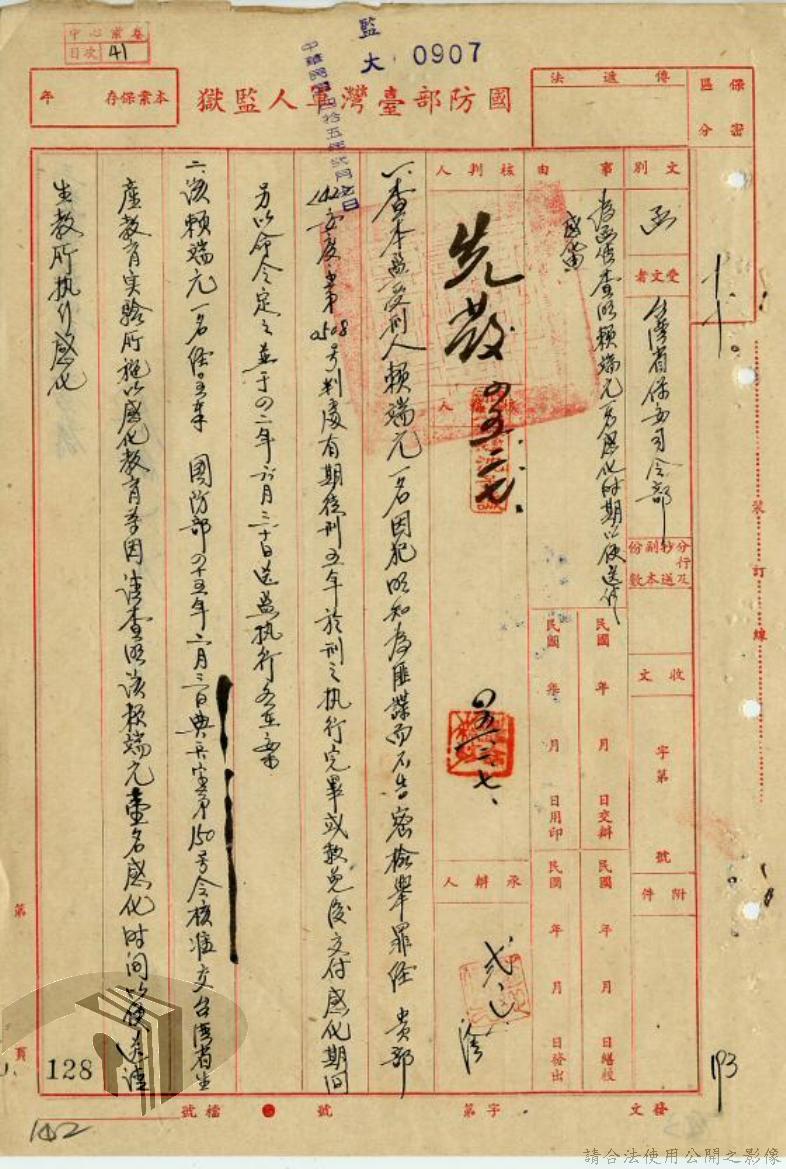 中心案卷
目次 41
監大 0907
中華民國四拾五年貳月
國防部臺灣軍人監獄
本案保存 年
傳遞法
保密區分
文別 函
受文者 台灣省保安司令部
分行及抄送副本份數
收文 字第 號
附件
事由
為函請查明賴端元一名感化時期以便送
民國 年 月 日交辦
民國 年 月 日繕校
民國 年 月 日用印
民國 年 月 日發出
核判人
先發
四五二七
承辦人
一、查本監受刑人賴端元一名因犯明知為匪諜而不告密檢舉罪經 貴部
字第0508号判處有期徒刑五年於刑之执行完畢或赦免後交付感化期间
另以命令定之並于四二年 月三十日送監执行在案
二、該賴端元一名经 國防部四十五年二月三日典 字第150号令核准交台湾省生
產教育实驗所施以感化教育 因請查明該賴端元壹名感化时间以便送
生教所执行感化
發文 字第 號 檔號
裝訂線
第 頁
128
142
193
請合法使用公開之影像